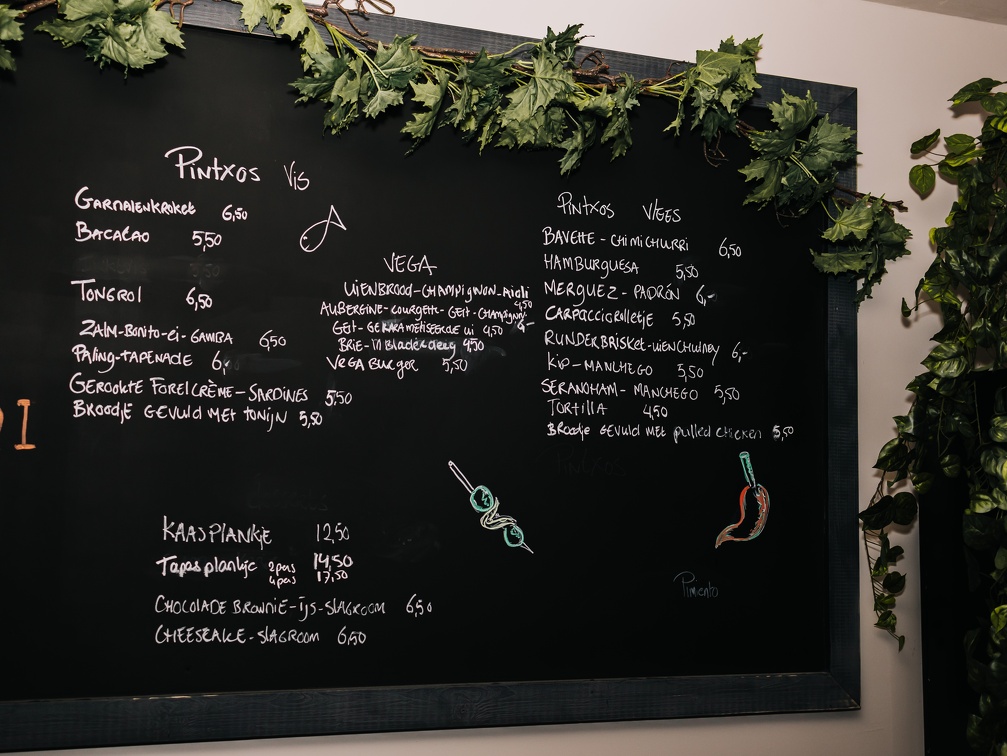 PINTXOS VIS
GARNALENKROKET 6,50
BACALAO 5,50
TONGROL 6,50
ZALM-BONITO-EI-GAMBA 6,50
PALING-TAPENADE 6,-
GEROOKTE FORELCRÈME-SARDINES 5,50
BROODJE GEVULD MET TONIJN 5,50
VEGA
UIENBROOD-CHAMPIGNON-Aioli 4,50
AUBERGINE-COURGETTE-GEIT-CHAMPIGNON 6,-
GEIT-GEKARAMELISEERDE UI 4,50
BRIE-IN Bladerdeeg 4,50
VEGA BURGER 5,50
PINTXOS VLEES
BAVETTE-CHIMICHURRI 6,50
HAMBURGUESA 5,50
MERGUEZ-PADRÓN 6,-
CARPACCIOROLLETJE 5,50
RUNDERBRISKET-UIENCHUTNEY 6,-
KIP-MANCHEGO 5,50
SERANOHAM-MANCHEGO 5,50
TORTILLA 4,50
BROODJE GEVULD MET pulled chicken 5,50
PINTXOS
KAASPLANKJE 12,50
Tapas plankje 2pers 14,50
4pers 17,50
CHOCOLADE BROWNIE-IJS-SLAGROOM 6,50
CHEESCAKE-SLAGROOM 6,50
Pimiento
DI